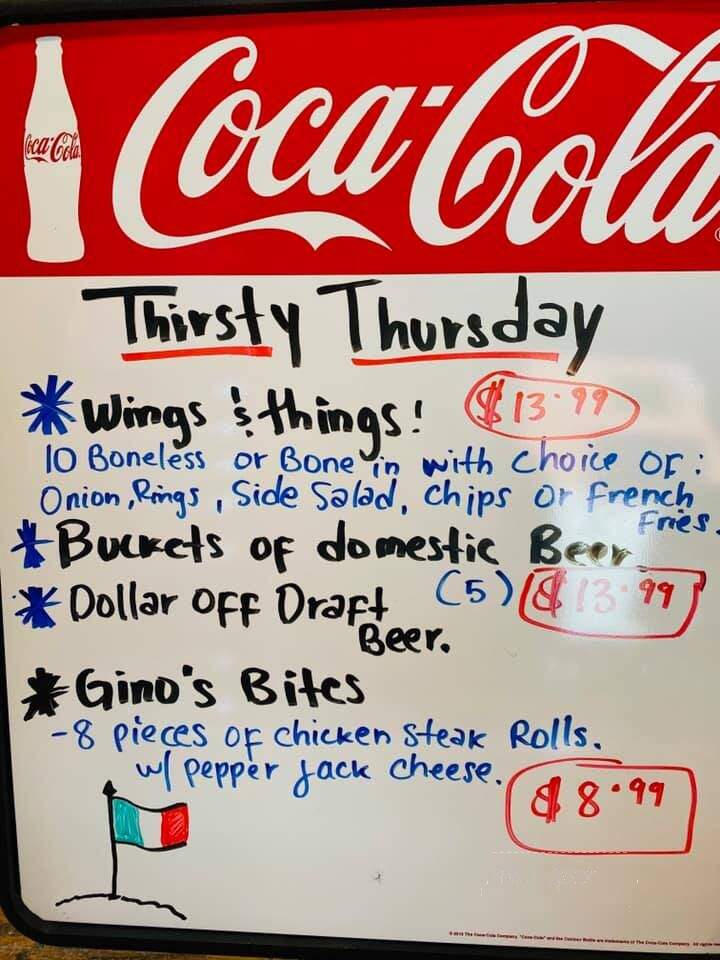 Coca-Cola
Coca-Cola
Thirsty Thursday
* Wings & things! $13.99
10 Boneless or Bone in with choice of:
Onion, Rings, Side Salad, Chips or French
Fries.
* Buckets of domestic Beer
(5) $13.99
* Dollar OFF Draft
Beer.
* Gino's Bites
-8 pieces of chicken steak Rolls.
w/ pepper jack cheese.
$8.99